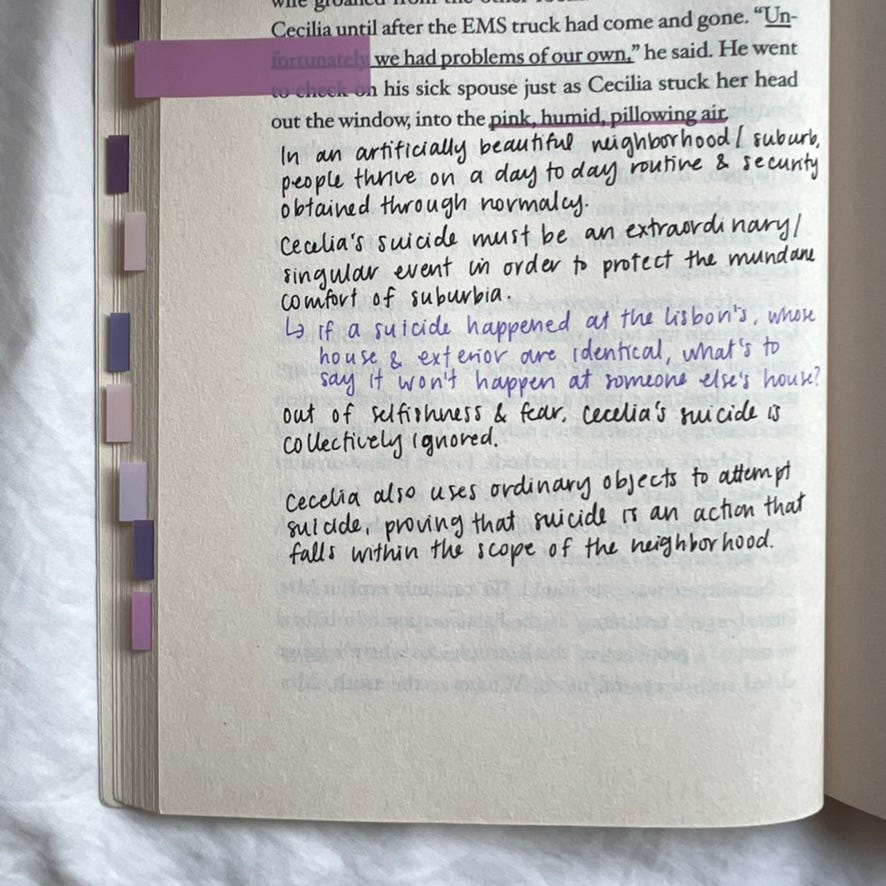 wife groaned from the other room.
Cecilia until after the EMS truck had come and gone. “Un-
fortunately we had problems of our own,” he said. He went
to check on his sick spouse just as Cecilia stuck her head
out the window, into the pink, humid, pillowing air.
In an artificially beautiful neighborhood / suburb,
people thrive on a day to day routine & security
obtained through normalcy.
Cecelia's suicide must be an extraordinary/
singular event in order to protect the mundane
comfort of suburbia.
↳ if a suicide happened at the lisbon's, whose
house & exterior are identical, what's to
say it won't happen at someone else's house?
out of selfishness & fear, cecelia's suicide is
collectively ignored.
Cecelia also uses ordinary objects to attempt
suicide, proving that suicide is an action that
falls within the scope of the neighborhood.